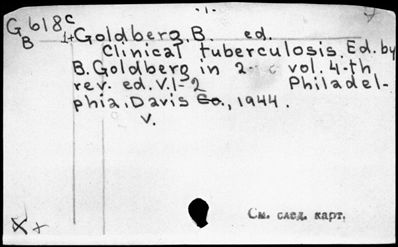 G618c
B
1+Goldberg, B. ed.
Clinical tuberculosis. Ed. by
B. Goldberg in 2 vol. 4-th
rev. ed. V.1-2 Philadel-
phia, Davis Co., 1944.
V.
См. след. карт.
X+